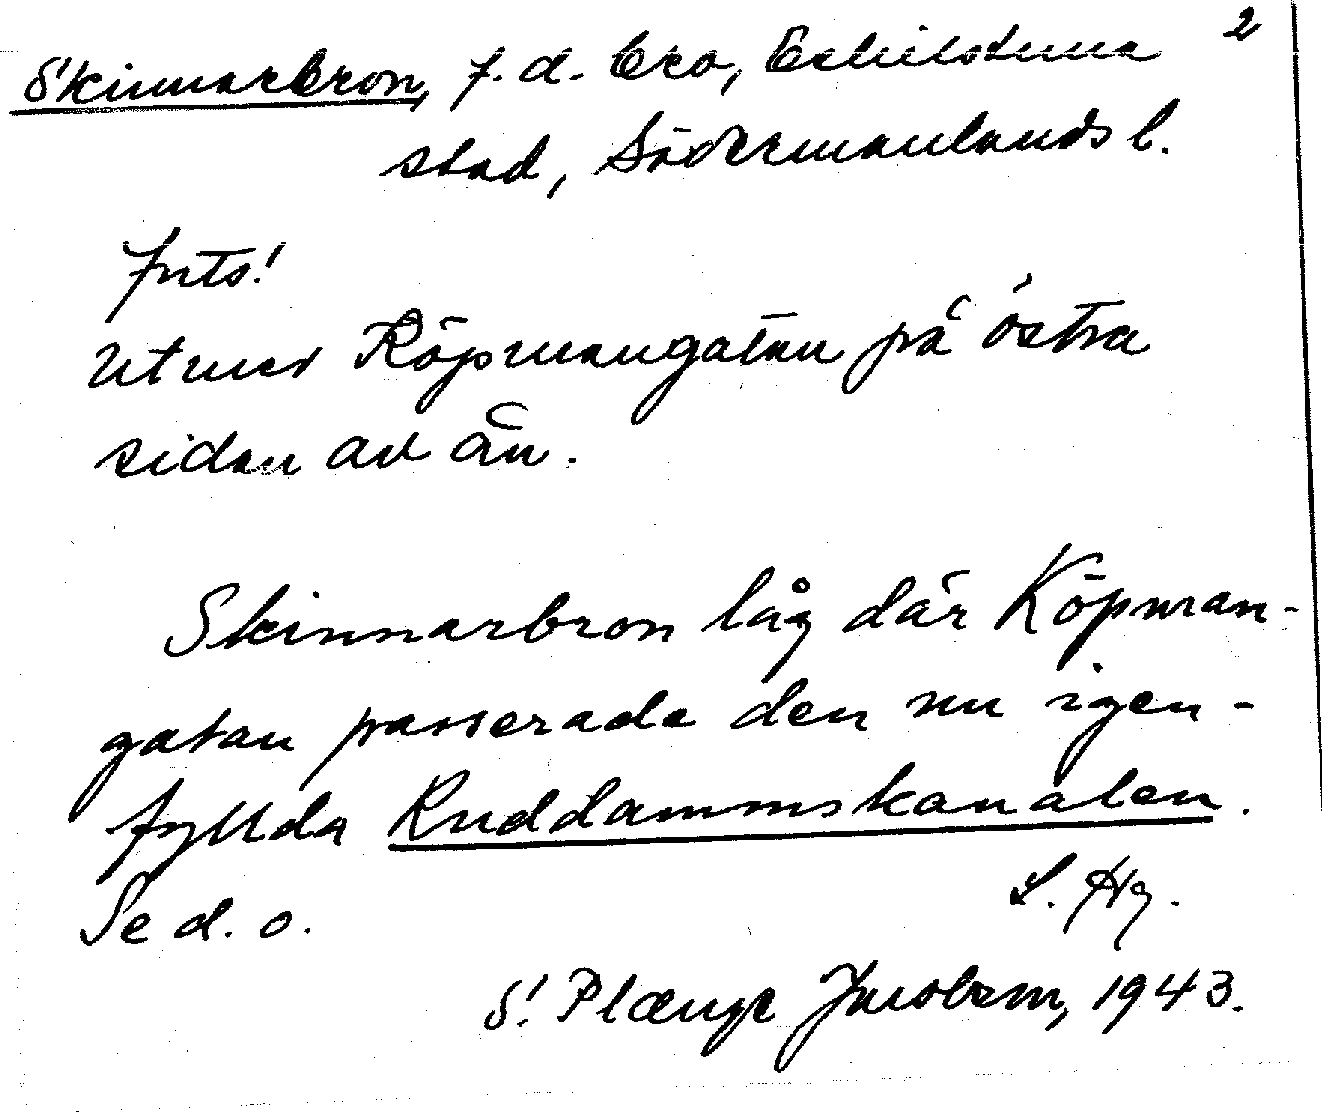 2
Skinnarbron, f.d. bro, Eskilstuna
stad, Södermanlands l.
Utmed Köpmangatan på östra
sidan av ån.
Skinnarbron låg där Köpman-
gatan passerade den nu igen-
fyllda Ruddammskanalen.
Se d. o.
S. Plænge Jacobson, 1943.